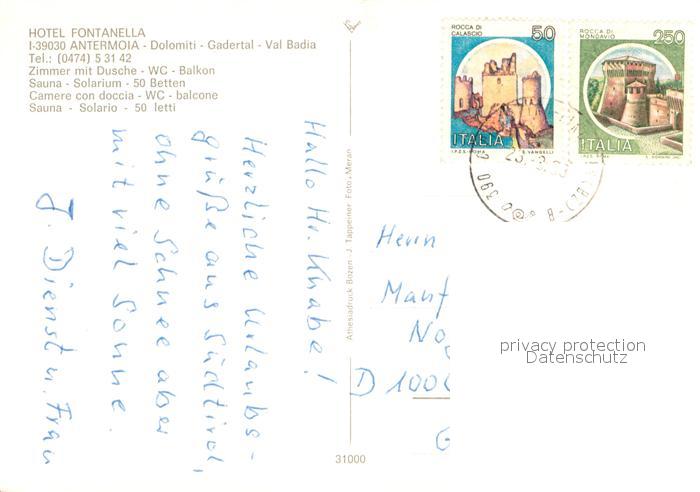 HOTEL FONTANELLA
I-39030 ANTERMOIA - Dolomiti - Gadertal - Val Badia
Tel.: (0474) 5 31 42
Zimmer mit Dusche - WC - Balkon
Sauna - Solarium - 50 Betten
Camere con doccia - WC - balcone
Sauna - Solario - 50 letti
Hallo Hr. Knabe!
Herzliche Urlaubs-
grüße aus Südtirol,
ohne Schnee aber
mit viel Sonne.
J. Dienst u. Frau
Athesiadruck Brixen - J. Tappeiner Foto - Meran
31000
ROCCA DI
CALASCIO
50
ITALIA
I.P.Z.S. ROMA
E. VANGELLI
ROCCA DI
MONDAVIO
250
ITALIA
Herrn
Manf
No
D 1000
G
privacy protection
Datenschutz